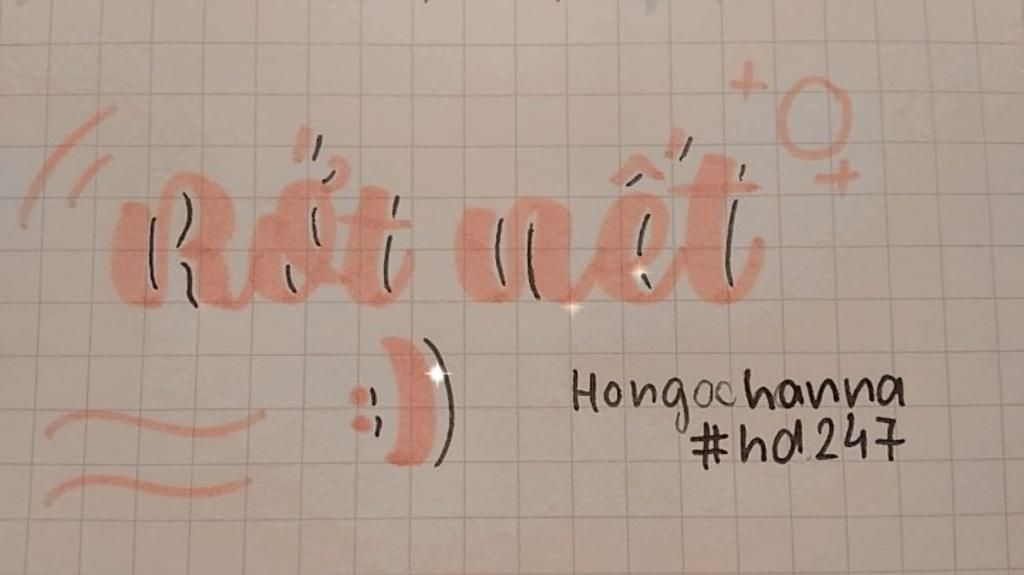 Rớt nết
:)
Hongochanna
#hd247